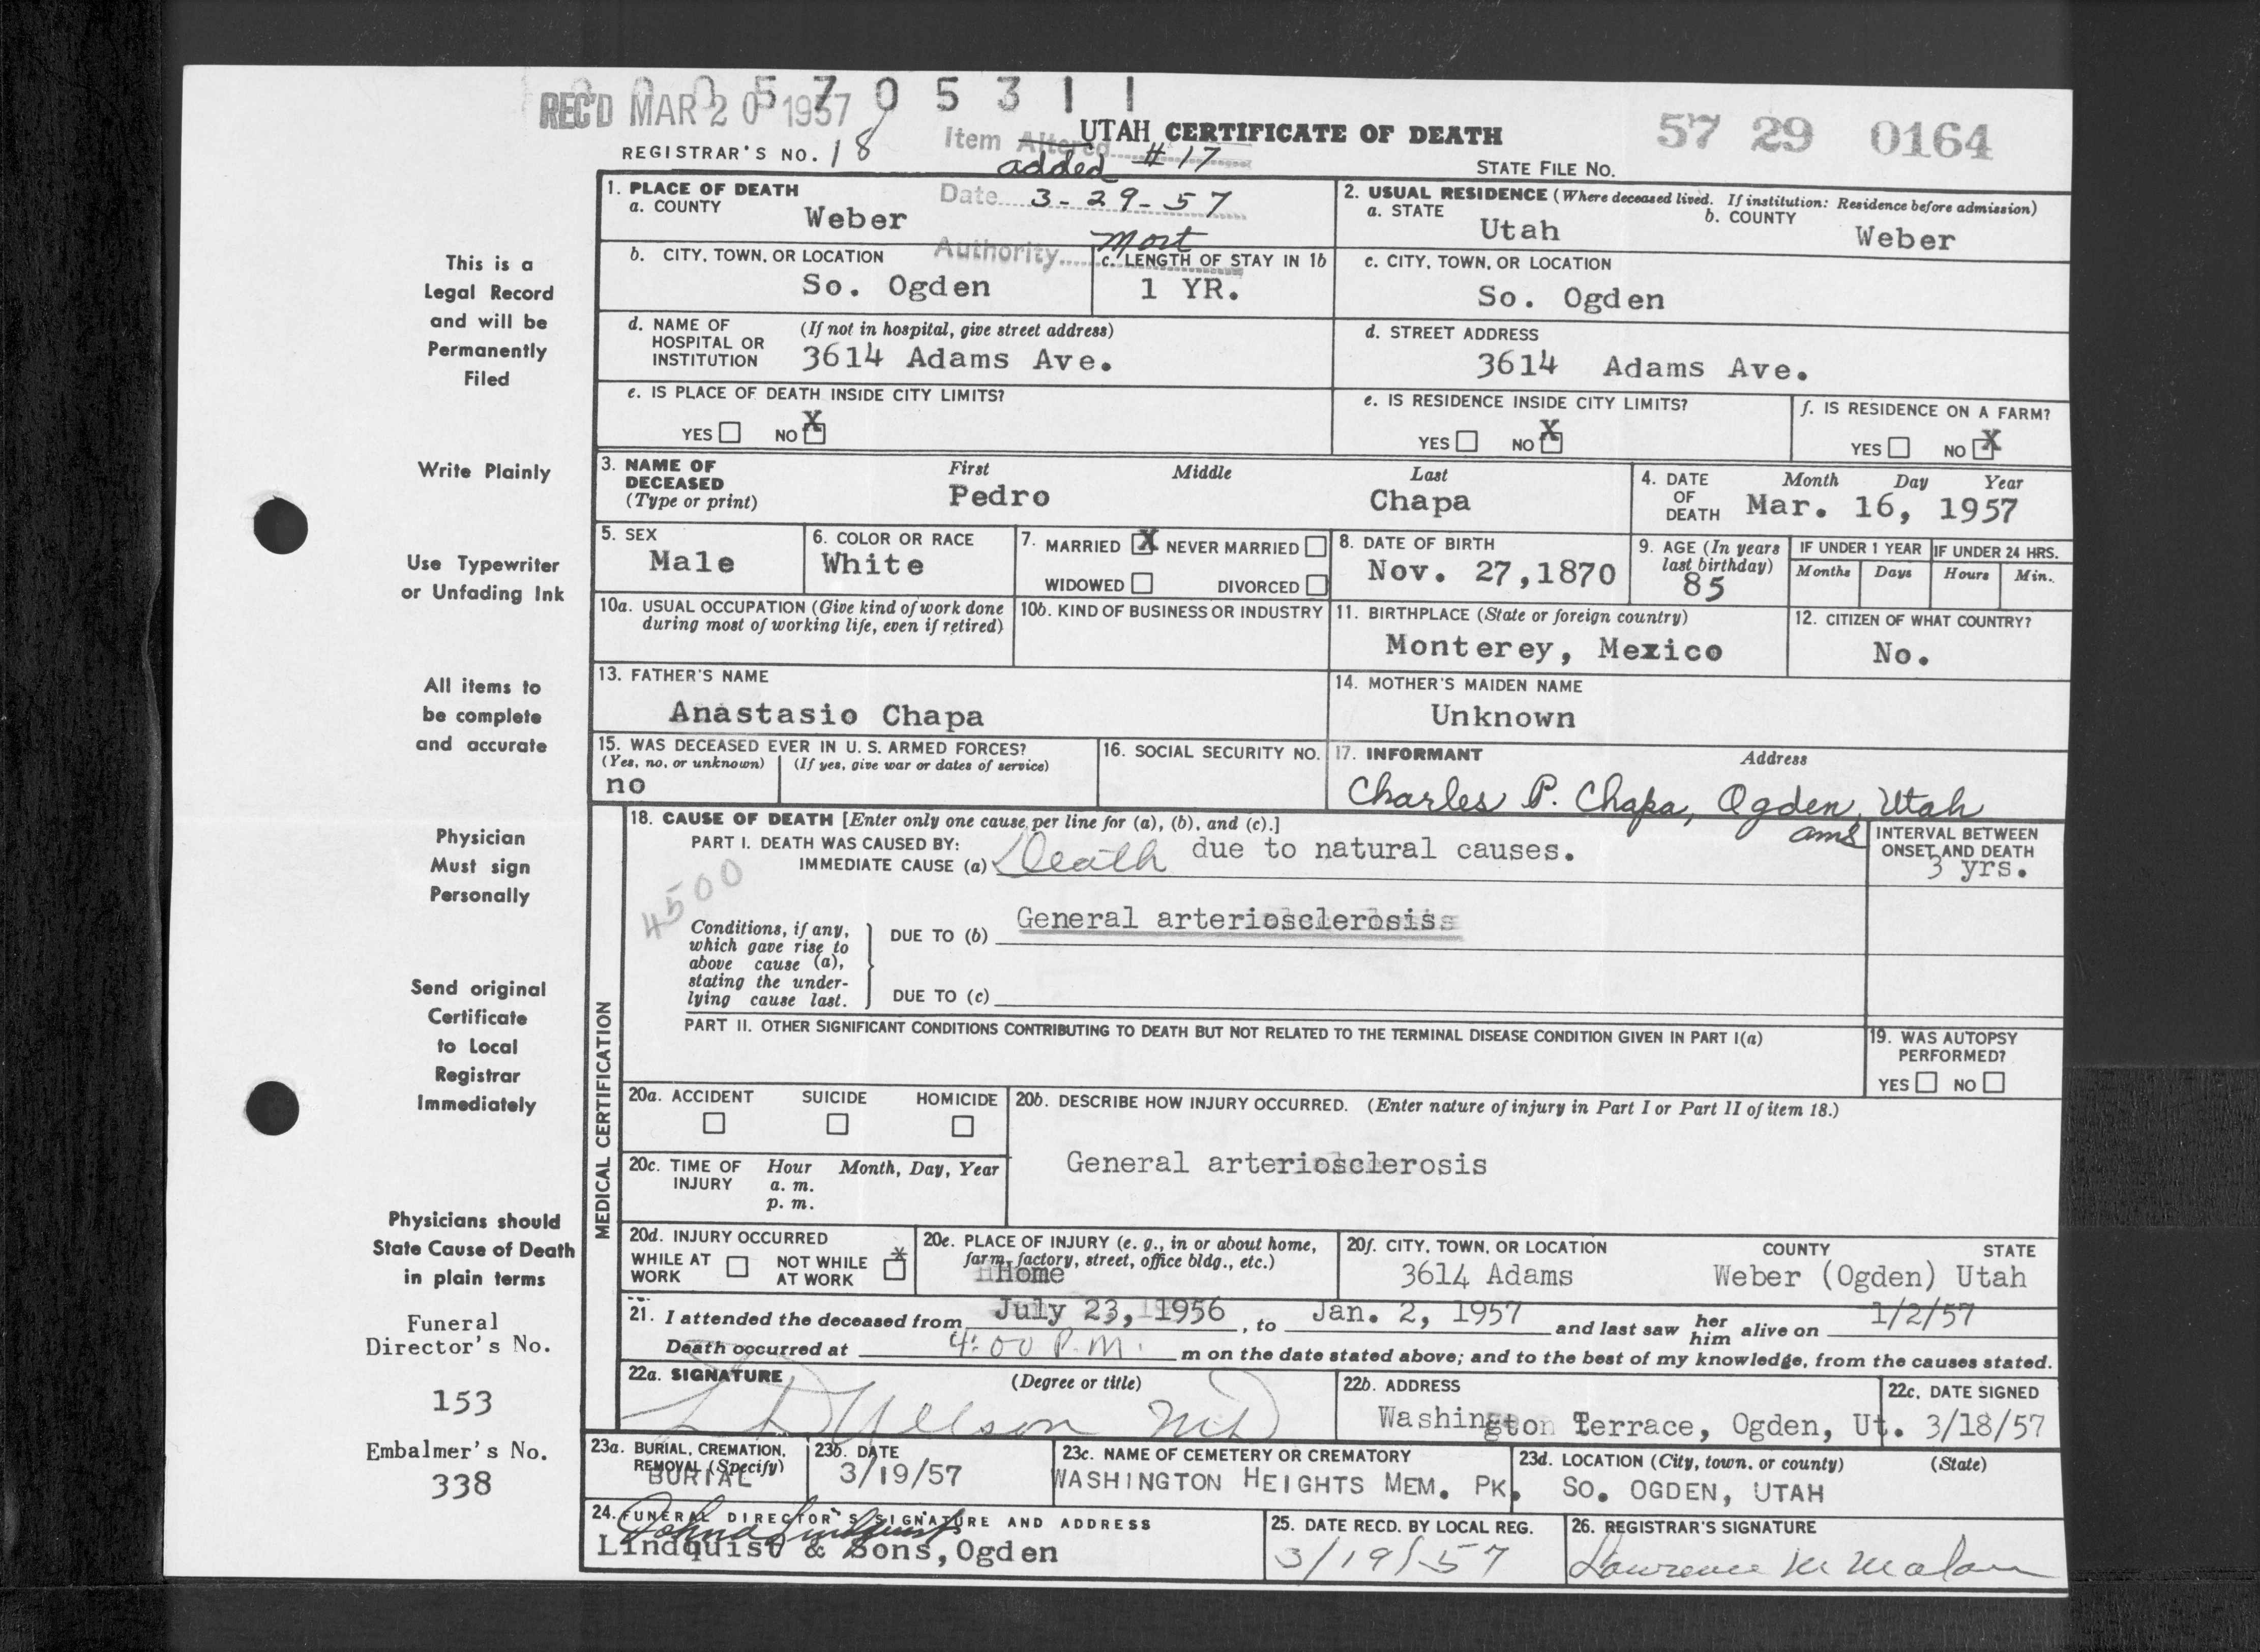 0 0 0 5 7 0 5 3 1 1
REC'D MAR 20 1957
UTAH CERTIFICATE OF DEATH
57 29 0164
REGISTRAR'S NO. 18
Item Altered added #17
STATE FILE NO.
Date 3-29-57
Authority Mort
1. PLACE OF DEATH
a. COUNTY
Weber
2. USUAL RESIDENCE (Where deceased lived. If institution: Residence before admission)
a. STATE
Utah
b. COUNTY
Weber
b. CITY, TOWN, OR LOCATION
So. Ogden
c. LENGTH OF STAY IN 1b
1 YR.
c. CITY, TOWN, OR LOCATION
So. Ogden
d. NAME OF HOSPITAL OR INSTITUTION
(If not in hospital, give street address)
3614 Adams Ave.
d. STREET ADDRESS
3614 Adams Ave.
e. IS PLACE OF DEATH INSIDE CITY LIMITS?
YES NO X
e. IS RESIDENCE INSIDE CITY LIMITS?
YES NO X
f. IS RESIDENCE ON A FARM?
YES NO X
3. NAME OF DECEASED (Type or print)
First Middle Last
Pedro Chapa
4. DATE OF DEATH
Month Day Year
Mar. 16, 1957
5. SEX
Male
6. COLOR OR RACE
White
7. MARRIED X NEVER MARRIED
WIDOWED DIVORCED
8. DATE OF BIRTH
Nov. 27,1870
9. AGE (In years last birthday)
85
IF UNDER 1 YEAR
Months Days
IF UNDER 24 HRS.
Hours Min.
10a. USUAL OCCUPATION (Give kind of work done during most of working life, even if retired)
10b. KIND OF BUSINESS OR INDUSTRY
11. BIRTHPLACE (State or foreign country)
Monterey, Mexico
12. CITIZEN OF WHAT COUNTRY?
No.
13. FATHER'S NAME
Anastasio Chapa
14. MOTHER'S MAIDEN NAME
Unknown
15. WAS DECEASED EVER IN U. S. ARMED FORCES?
(Yes, no, or unknown) (If yes, give war or dates of service)
no
16. SOCIAL SECURITY NO.
17. INFORMANT Address
Charles P. Chapa, Ogden, Utah
ams
MEDICAL CERTIFICATION
18. CAUSE OF DEATH [Enter only one cause per line for (a), (b), and (c).]
PART I. DEATH WAS CAUSED BY:
IMMEDIATE CAUSE (a) Death due to natural causes.
INTERVAL BETWEEN ONSET AND DEATH
3 yrs.
4500
Conditions, if any, which gave rise to above cause (a), stating the underlying cause last.
DUE TO (b) General arteriosclerosis
DUE TO (c)
PART II. OTHER SIGNIFICANT CONDITIONS CONTRIBUTING TO DEATH BUT NOT RELATED TO THE TERMINAL DISEASE CONDITION GIVEN IN PART I(a)
19. WAS AUTOPSY PERFORMED?
YES NO
20a. ACCIDENT SUICIDE HOMICIDE
20b. DESCRIBE HOW INJURY OCCURRED. (Enter nature of injury in Part I or Part II of item 18.)
General arteriosclerosis
20c. TIME OF INJURY
Hour Month, Day, Year
a. m.
p. m.
20d. INJURY OCCURRED
WHILE AT WORK NOT WHILE AT WORK *
20e. PLACE OF INJURY (e. g., in or about home, farm, factory, street, office bldg., etc.)
Home
20f. CITY, TOWN, OR LOCATION COUNTY STATE
3614 Adams Weber (Ogden) Utah
21. I attended the deceased from July 23, 1956, to Jan. 2, 1957 and last saw her him alive on 1/2/57
Death occurred at 4:00 P.M. m on the date stated above; and to the best of my knowledge, from the causes stated.
22a. SIGNATURE (Degree or title)
MD
22b. ADDRESS
Washington Terrace, Ogden, Ut.
22c. DATE SIGNED
3/18/57
23a. BURIAL, CREMATION, REMOVAL (Specify)
BURIAL
23b. DATE
3/19/57
23c. NAME OF CEMETERY OR CREMATORY
WASHINGTON HEIGHTS MEM. PK.
23d. LOCATION (City, town, or county) (State)
SO. OGDEN, UTAH
24. FUNERAL DIRECTOR'S SIGNATURE AND ADDRESS
Lindquist & Sons,Ogden
25. DATE RECD. BY LOCAL REG.
3/19/57
26. REGISTRAR'S SIGNATURE
Lawrence M Malan
This is a
Legal Record
and will be
Permanently
Filed
Write Plainly
Use Typewriter
or Unfading Ink
All items to
be complete
and accurate
Physician
Must sign
Personally
Send original
Certificate
to Local
Registrar
Immediately
Physicians should
State Cause of Death
in plain terms
Funeral
Director's No.
153
Embalmer's No.
338